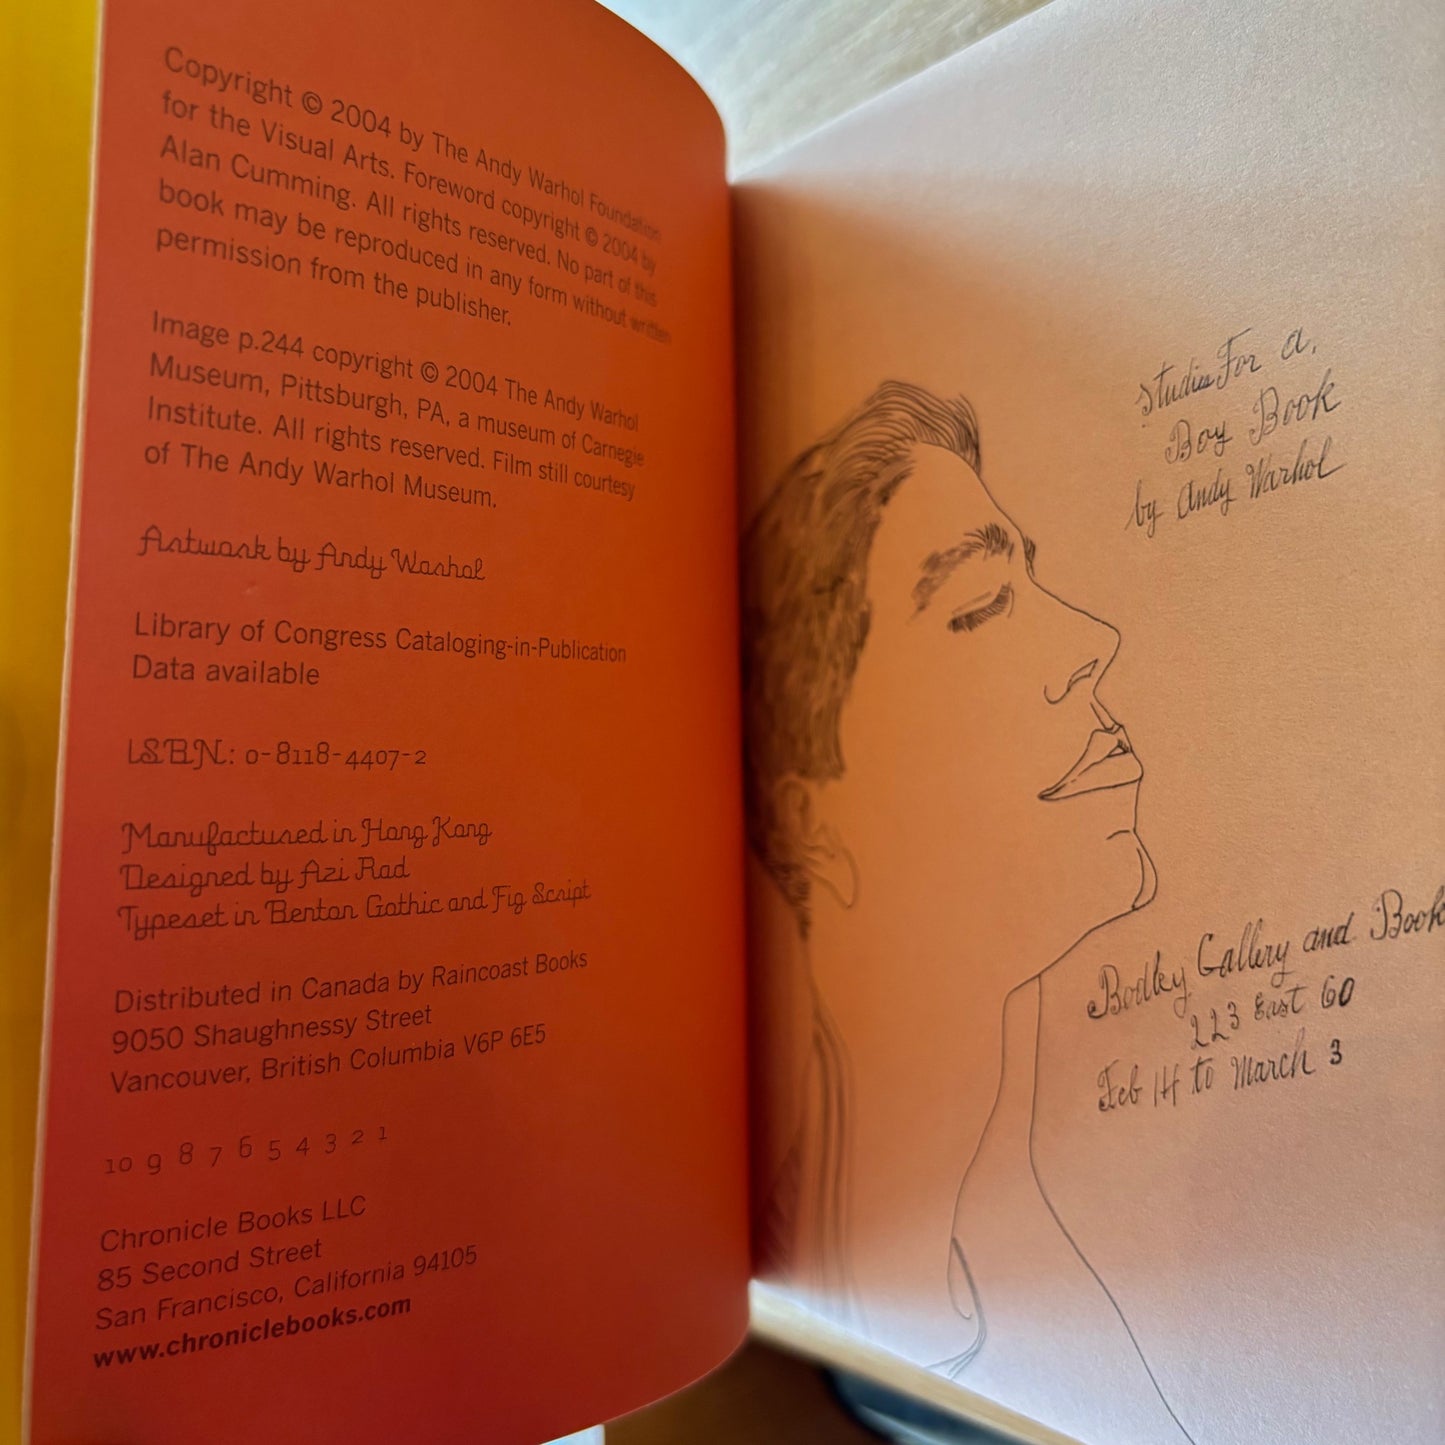 Copyright © 2004 by The Andy Warhol Foundation
for the Visual Arts. Foreword copyright © 2004 by
Alan Cumming. All rights reserved. No part of this
book may be reproduced in any form without written
permission from the publisher.
Image p.244 copyright © 2004 The Andy Warhol
Museum, Pittsburgh, PA, a museum of Carnegie
Institute. All rights reserved. Film still courtesy
of The Andy Warhol Museum.
Artwork by Andy Warhol
Library of Congress Cataloging-in-Publication
Data available
ISBN: 0-8118-4407-2
Manufactured in Hong Kong
Designed by Azi Rad
Typeset in Benton Gothic and Fig Script
Distributed in Canada by Raincoast Books
9050 Shaughnessy Street
Vancouver, British Columbia V6P 6E5
10 9 8 7 6 5 4 3 2 1
Chronicle Books LLC
85 Second Street
San Francisco, California 94105
www.chroniclebooks.com
Studies For a,
Boy Book
by Andy Warhol
Bodley Gallery and Book
223 East 60
Feb 14 to March 3